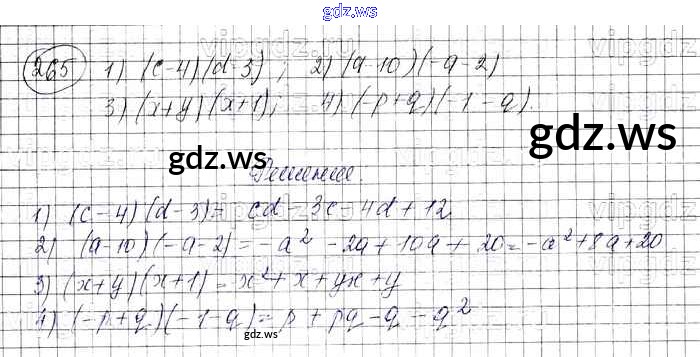 gdz.ws
265 1) (c-4)(d-3); 2) (a-10)(-a-2)
3) (x+y)(x+1); 4) (-p+q)(-1-q).
gdz.ws
gdz.ws
Решение.
1) (c-4)(d-3)= cd-3c-4d+12
2) (a-10)(-a-2)=-a²-2a+10a+20=-a²+8a+20
3) (x+y)(x+1)=x²+x+yx+y
4) (-p+q)(-1-q)=p+pq-q-q²
gdz.ws